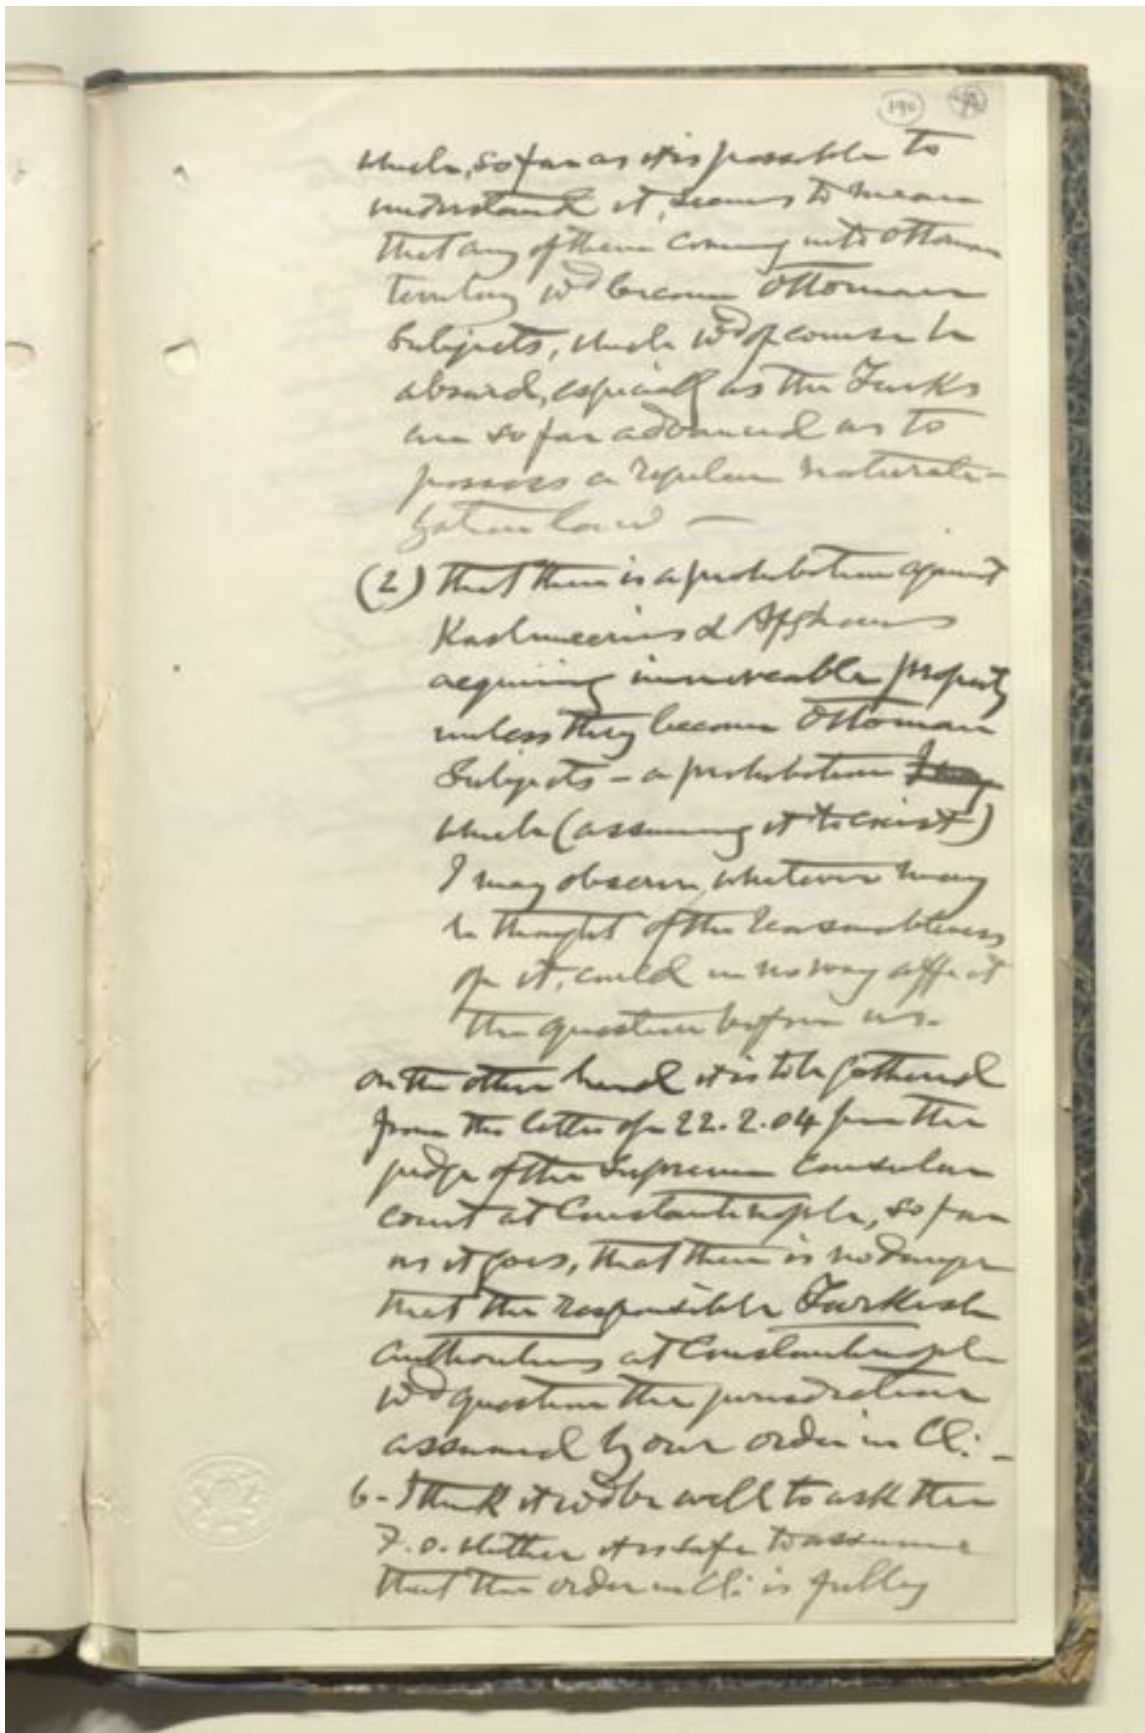 190
which, so far as it is possible to
understand it, seems to mean
that any of them coming into Ottoman
territory wd become Ottoman
subjects, which wd of course be
absurd, especially as the Turks
are so far advanced as to
possess a regular naturali-
zation law —
(2) that there is a prohibition against
Kashmeeries & Afghans
acquiring immoveable property
unless they become Ottoman
Subjects – a prohibition
which (assuming it to exist)
I may observe, whatever may
be thought of the reasonableness
of it, could in no way affect
the question before us.
on the other hand it is to be gathered
from the letter of 22.2.04 from the
judge of the Supreme Consular
court at Constantinople, so far
as it goes, that there is no danger
that the responsible Turkish
authorities at Constantinople
wd question the jurisdiction
assumed by our order in Cl: –
6 - I think it wd be well to ask the
F.O. whether it is safe to assume
that the order in Cl: is fully